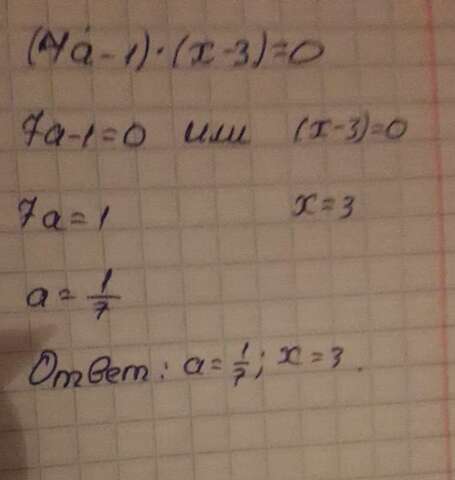 (7a-1)·(x-3)=0
7a-1=0 или (x-3)=0
7a=1 x=3
a=1/7
Ответ: a=1/7; x=3.